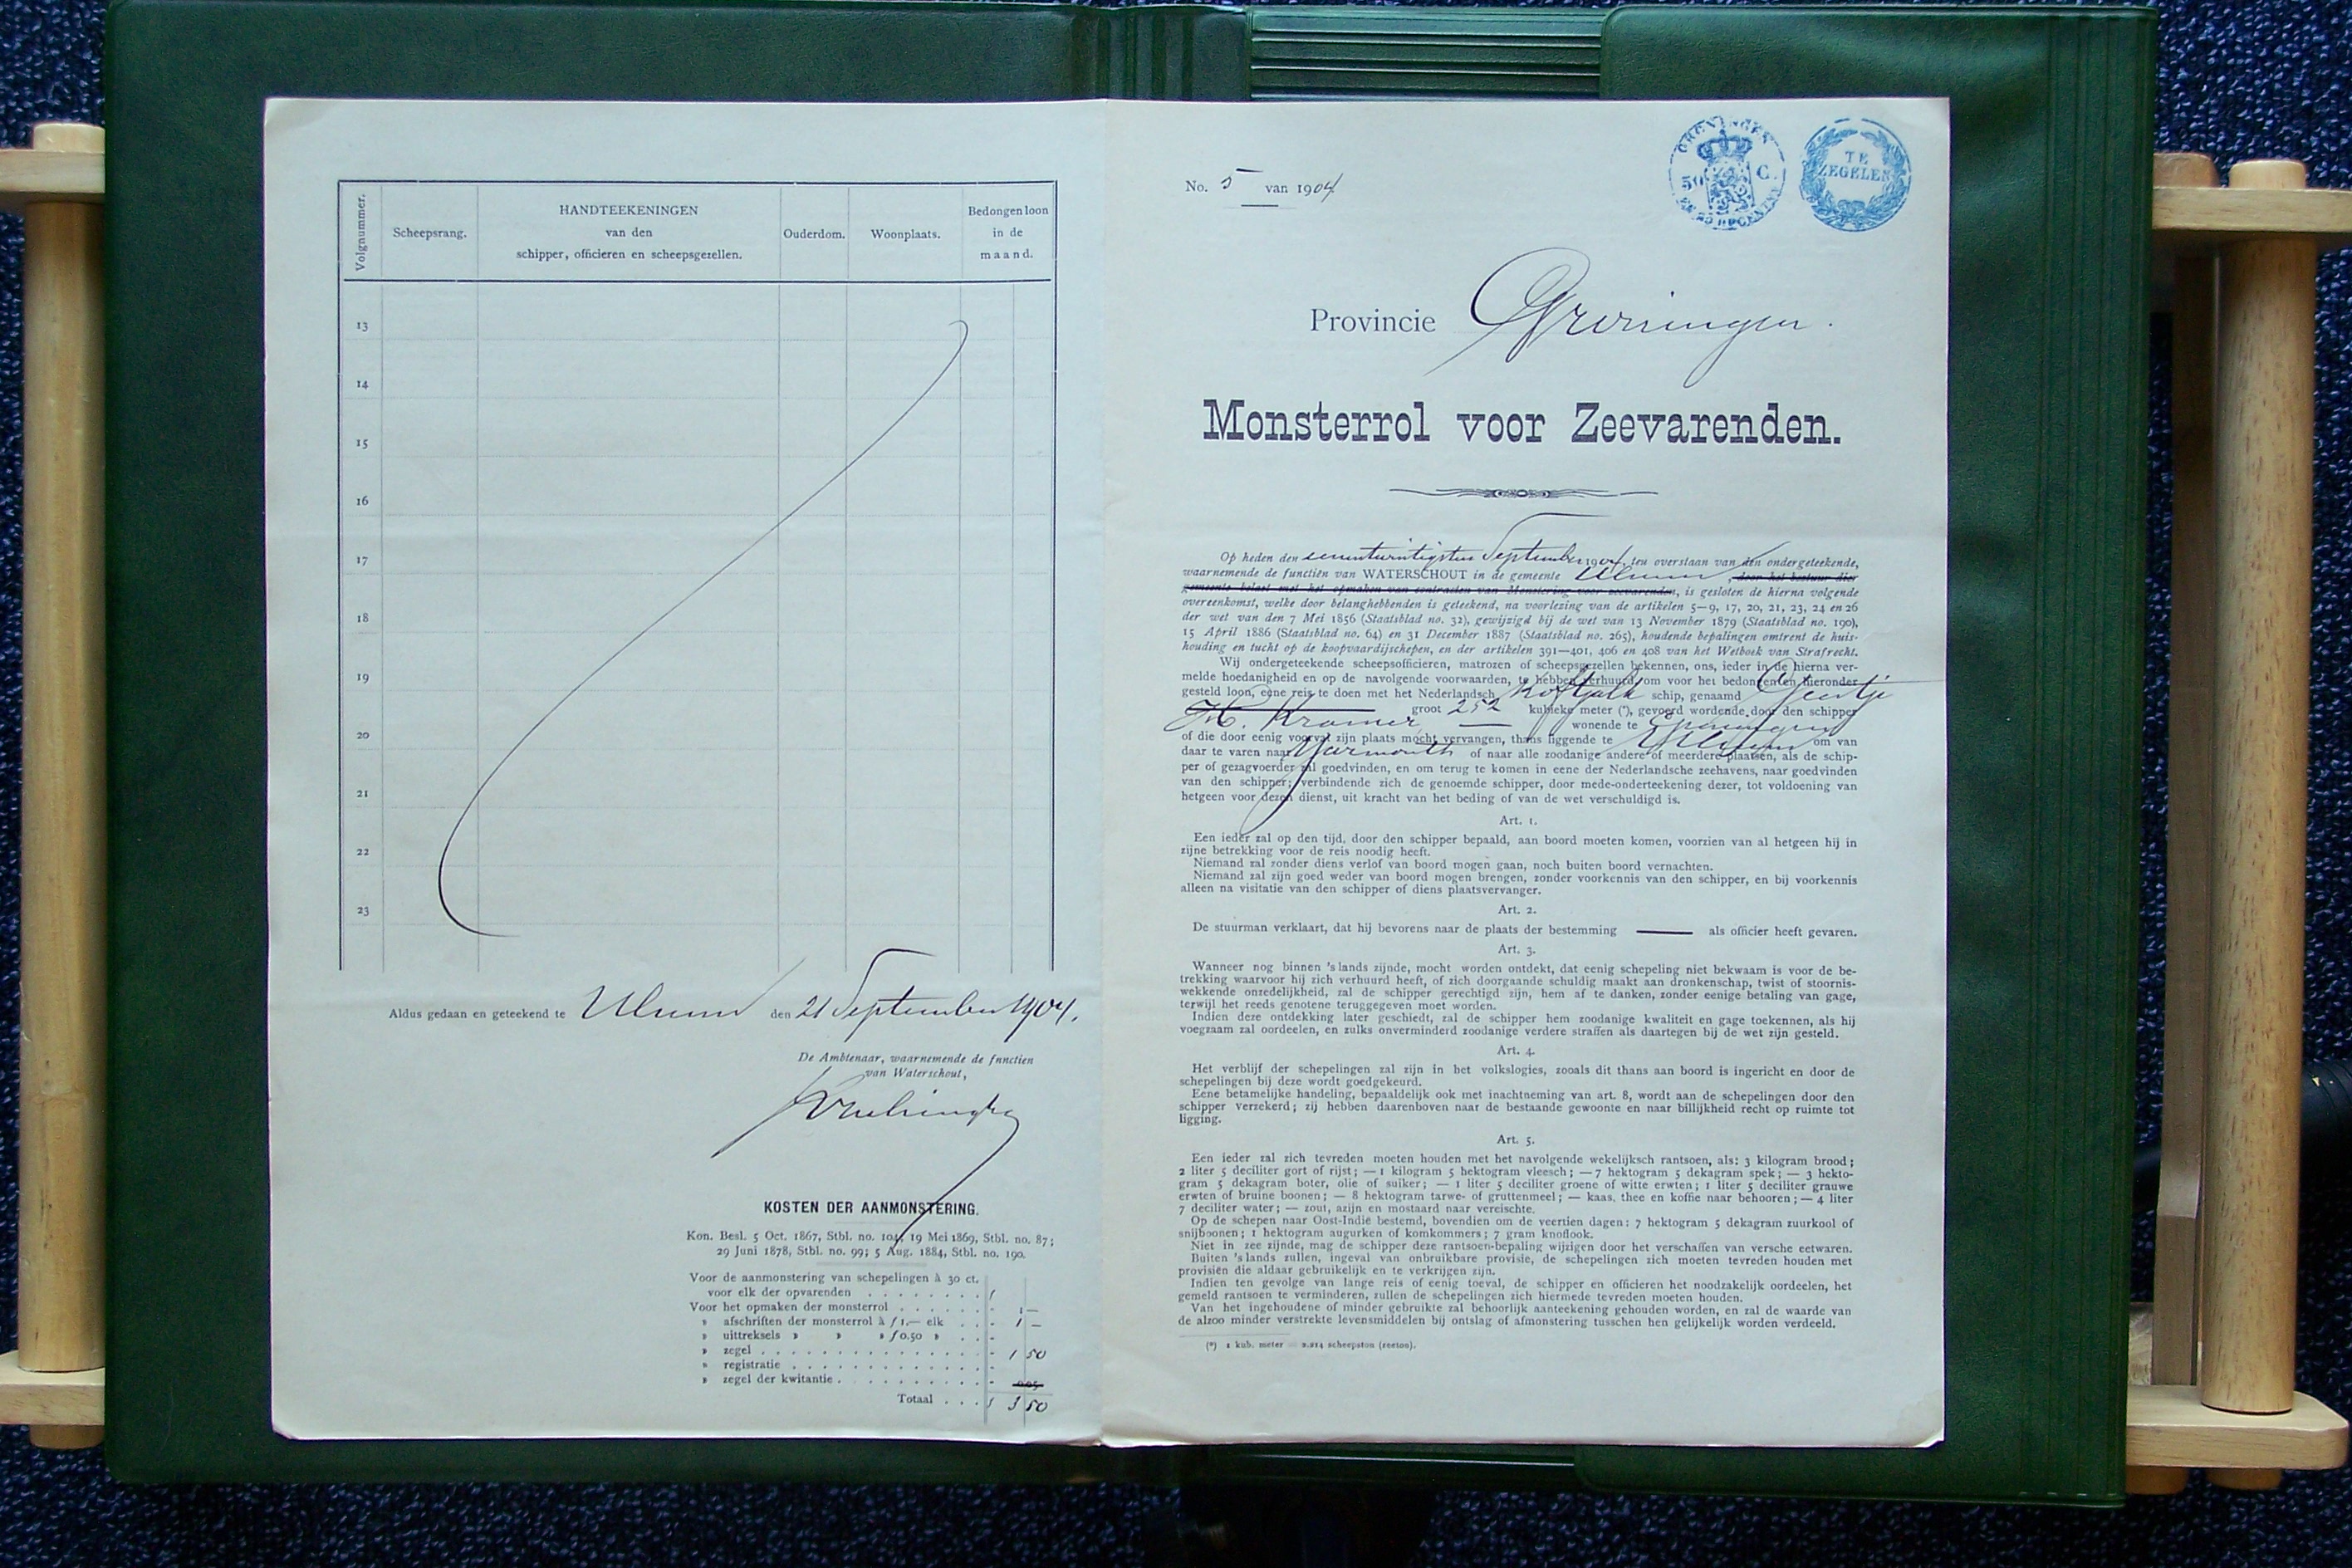 Volgnummer.
Scheepsrang.
HANDTEEKENINGEN
van den
schipper, officieren en scheepsgezellen.
Ouderdom.
Woonplaats.
Bedongen loon
in de
maand.
13
14
15
16
17
18
19
20
21
22
23
Aldus gedaan en geteekend te Ulrum den 21 September 1904.
De Ambtenaar, waarnemende de fnnctien
van Waterschout,
KOSTEN DER AANMONSTERING.
Kon. Besl. 5 Oct. 1867, Stbl. no. 104, 19 Mei 1869, Stbl. no. 87;
29 Juni 1878, Stbl. no. 99; 5 Aug. 1884, Stbl. no. 190.
Voor de aanmonstering van schepelingen à 30 ct.
voor elk der opvarenden . . . . . . . . f
Voor het opmaken der monsterrol . . . . . . - 1 —
» afschriften der monsterrol à f 1,— elk . . - 1 —
» uittreksels » » » f 0.50 » . . -
» zegel . . . . . . . . . . . . . . . . - 1 50
» registratie . . . . . . . . . . . . . -
» zegel der kwitantie . . . . . . . . . . - 005
Totaal . . . f 3 50
No. 5 van 1904
GRONINGEN
50 C.
TE
ZEGELEN
Provincie Groningen.
Monsterrol voor Zeevarenden.
Op heden den eenentwintigsten September 1904, ten overstaan van den ondergeteekende,
waarnemende de functiën van WATERSCHOUT in de gemeente Ulrum, door het bestuur dier
gemeente belast met het opmaken van contracten van Monstering voor zeevarenden, is gesloten de hierna volgende
overeenkomst, welke door belanghebbenden is geteekend, na voorlezing van de artikelen 5—9, 17, 20, 21, 23, 24 en 26
der wet van den 7 Mei 1856 (Staatsblad no. 32), gewijzigd bij de wet van 13 November 1879 (Staatsblad no. 190),
15 April 1886 (Staatsblad no. 64) en 31 December 1887 (Staatsblad no. 265), houdende bepalingen omtrent de huis-
houding en tucht op de koopvaardijschepen, en der artikelen 391—401, 406 en 408 van het Wetboek van Strafrecht.
Wij ondergeteekende scheepsofficieren, matrozen of scheepsgezellen bekennen, ons, ieder in de hierna ver-
melde hoedanigheid en op de navolgende voorwaarden, te hebben verhuurd om voor het bedongen en hieronder
gesteld loon, eene reis te doen met het Nederlandsch Koftjalk schip, genaamd Geertje
groot 252 kubieke meter (*), gevoerd wordende door den schipper
H. Kramer — wonende te Groningen
of die door eenig voorval zijn plaats mocht vervangen, thans liggende te om van
daar te varen naar Yarmouth of naar alle zoodanige andere of meerdere plaatsen, als de schip-
per of gezagvoerder zal goedvinden, en om terug te komen in eene der Nederlandsche zeehavens, naar goedvinden
van den schipper; verbindende zich de genoemde schipper, door mede-onderteekening dezer, tot voldoening van
hetgeen voor dezen dienst, uit kracht van het beding of van de wet verschuldigd is.
Art. 1.
Een ieder zal op den tijd, door den schipper bepaald, aan boord moeten komen, voorzien van al hetgeen hij in
zijne betrekking voor de reis noodig heeft.
Niemand zal zonder diens verlof van boord mogen gaan, noch buiten boord vernachten.
Niemand zal zijn goed weder van boord mogen brengen, zonder voorkennis van den schipper, en bij voorkennis
alleen na visitatie van den schipper of diens plaatsvervanger.
Art. 2.
De stuurman verklaart, dat hij bevorens naar de plaats der bestemming — als officier heeft gevaren.
Art. 3.
Wanneer nog binnen 's lands zijnde, mocht worden ontdekt, dat eenig schepeling niet bekwaam is voor de be-
trekking waarvoor hij zich verhuurd heeft, of zich doorgaande schuldig maakt aan dronkenschap, twist of stoornis-
wekkende onzedelijkheid, zal de schipper gerechtigd zijn, hem af te danken, zonder eenige betaling van gage,
terwijl het reeds genotene teruggegeven moet worden.
Indien deze ontdekking later geschiedt, zal de schipper hem zoodanige kwaliteit en gage toekennen, als hij
voegzaam zal oordeelen, en zulks onverminderd zoodanige verdere straffen als daartegen bij de wet zijn gesteld.
Art. 4.
Het verblijf der schepelingen zal zijn in het volkslogies, zooals dit thans aan boord is ingericht en door de
schepelingen bij deze wordt goedgekeurd.
Eene betamelijke handeling, bepaaldelijk ook met inachtneming van art. 8, wordt aan de schepelingen door den
schipper verzekerd; zij hebben daarenboven naar de bestaande gewoonte en naar billijkheid recht op ruimte tot
ligging.
Art. 5.
Een ieder zal zich tevreden moeten houden met het navolgende wekelijksch rantsoen, als: 3 kilogram brood;
2 liter 5 deciliter gort of rijst; — 1 kilogram 5 hektogram vleesch; — 7 hektogram 5 dekagram spek; — 3 hekto-
gram 5 dekagram boter, olie of suiker; — 1 liter 5 deciliter groene of witte erwten; 1 liter 5 deciliter grauwe
erwten of bruine boonen; — 8 hektogram tarwe- of gruttenmeel; — kaas, thee en koffie naar behooren; — 4 liter
7 deciliter water; — zout, azijn en mostaard naar vereischte.
Op de schepen naar Oost-Indië bestemd, bovendien om de veertien dagen: 7 hektogram 5 dekagram zuurkool of
snijboonen; 1 hektogram augurken of komkommers; 7 gram knoflook.
Niet in zee zijnde, mag de schipper deze rantsoen-bepaling wijzigen door het verschaffen van versche eetwaren.
Buiten 's lands zullen, ingeval van onbruikbare provisie, de schepelingen zich moeten tevreden houden met
provisiën die aldaar gebruikelijk en te verkrijgen zijn.
Indien ten gevolge van lange reis of eenig toeval, de schipper en officieren het noodzakelijk oordeelen, het
gemeld rantsoen te verminderen, zullen de schepelingen zich hiermede tevreden moeten houden.
Van het ingehoudene of minder gebruikte zal behoorlijk aanteekening gehouden worden, en zal de waarde van
de alzoo minder verstrekte levensmiddelen bij ontslag of afmonstering tusschen hen gelijkelijk worden verdeeld.
(*) 1 kub. meter = 2.214 scheepston (zeeton).